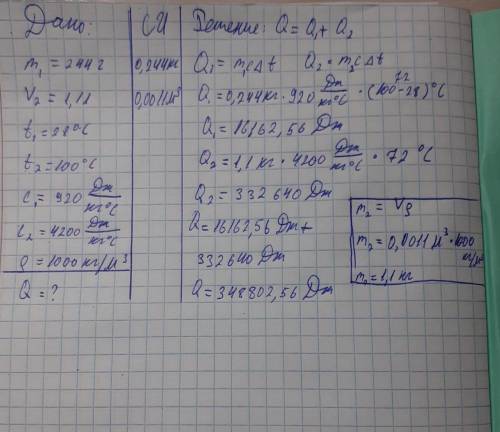 Дано:
m₁ = 244 г
V₂ = 1,1 л
t₁ = 28°C
t₂ = 100°C
c₁ = 920 Дж/кг°C
c₂ = 4200 Дж/кг°C
ρ = 1000 кг/м³
Q = ?
СИ
0,244 кг
0,0011 м³
Решение: Q = Q₁ + Q₂
Q₁ = m₁c₁Δt Q₂ = m₂cΔt
Q₁ = 0,244 кг · 920 Дж/кг°C · (100-28)°C
72
Q₁ = 16162,56 Дж
Q₂ = 1,1 кг · 4200 Дж/кг°C · 72 °C
Q₂ = 332640 Дж
Q = 16162,56 Дж +
332640 Дж
Q = 348802,56 Дж
m₂ = Vρ
m₂ = 0,0011 м³ · 1000 кг/м³
m₂ = 1,1 кг